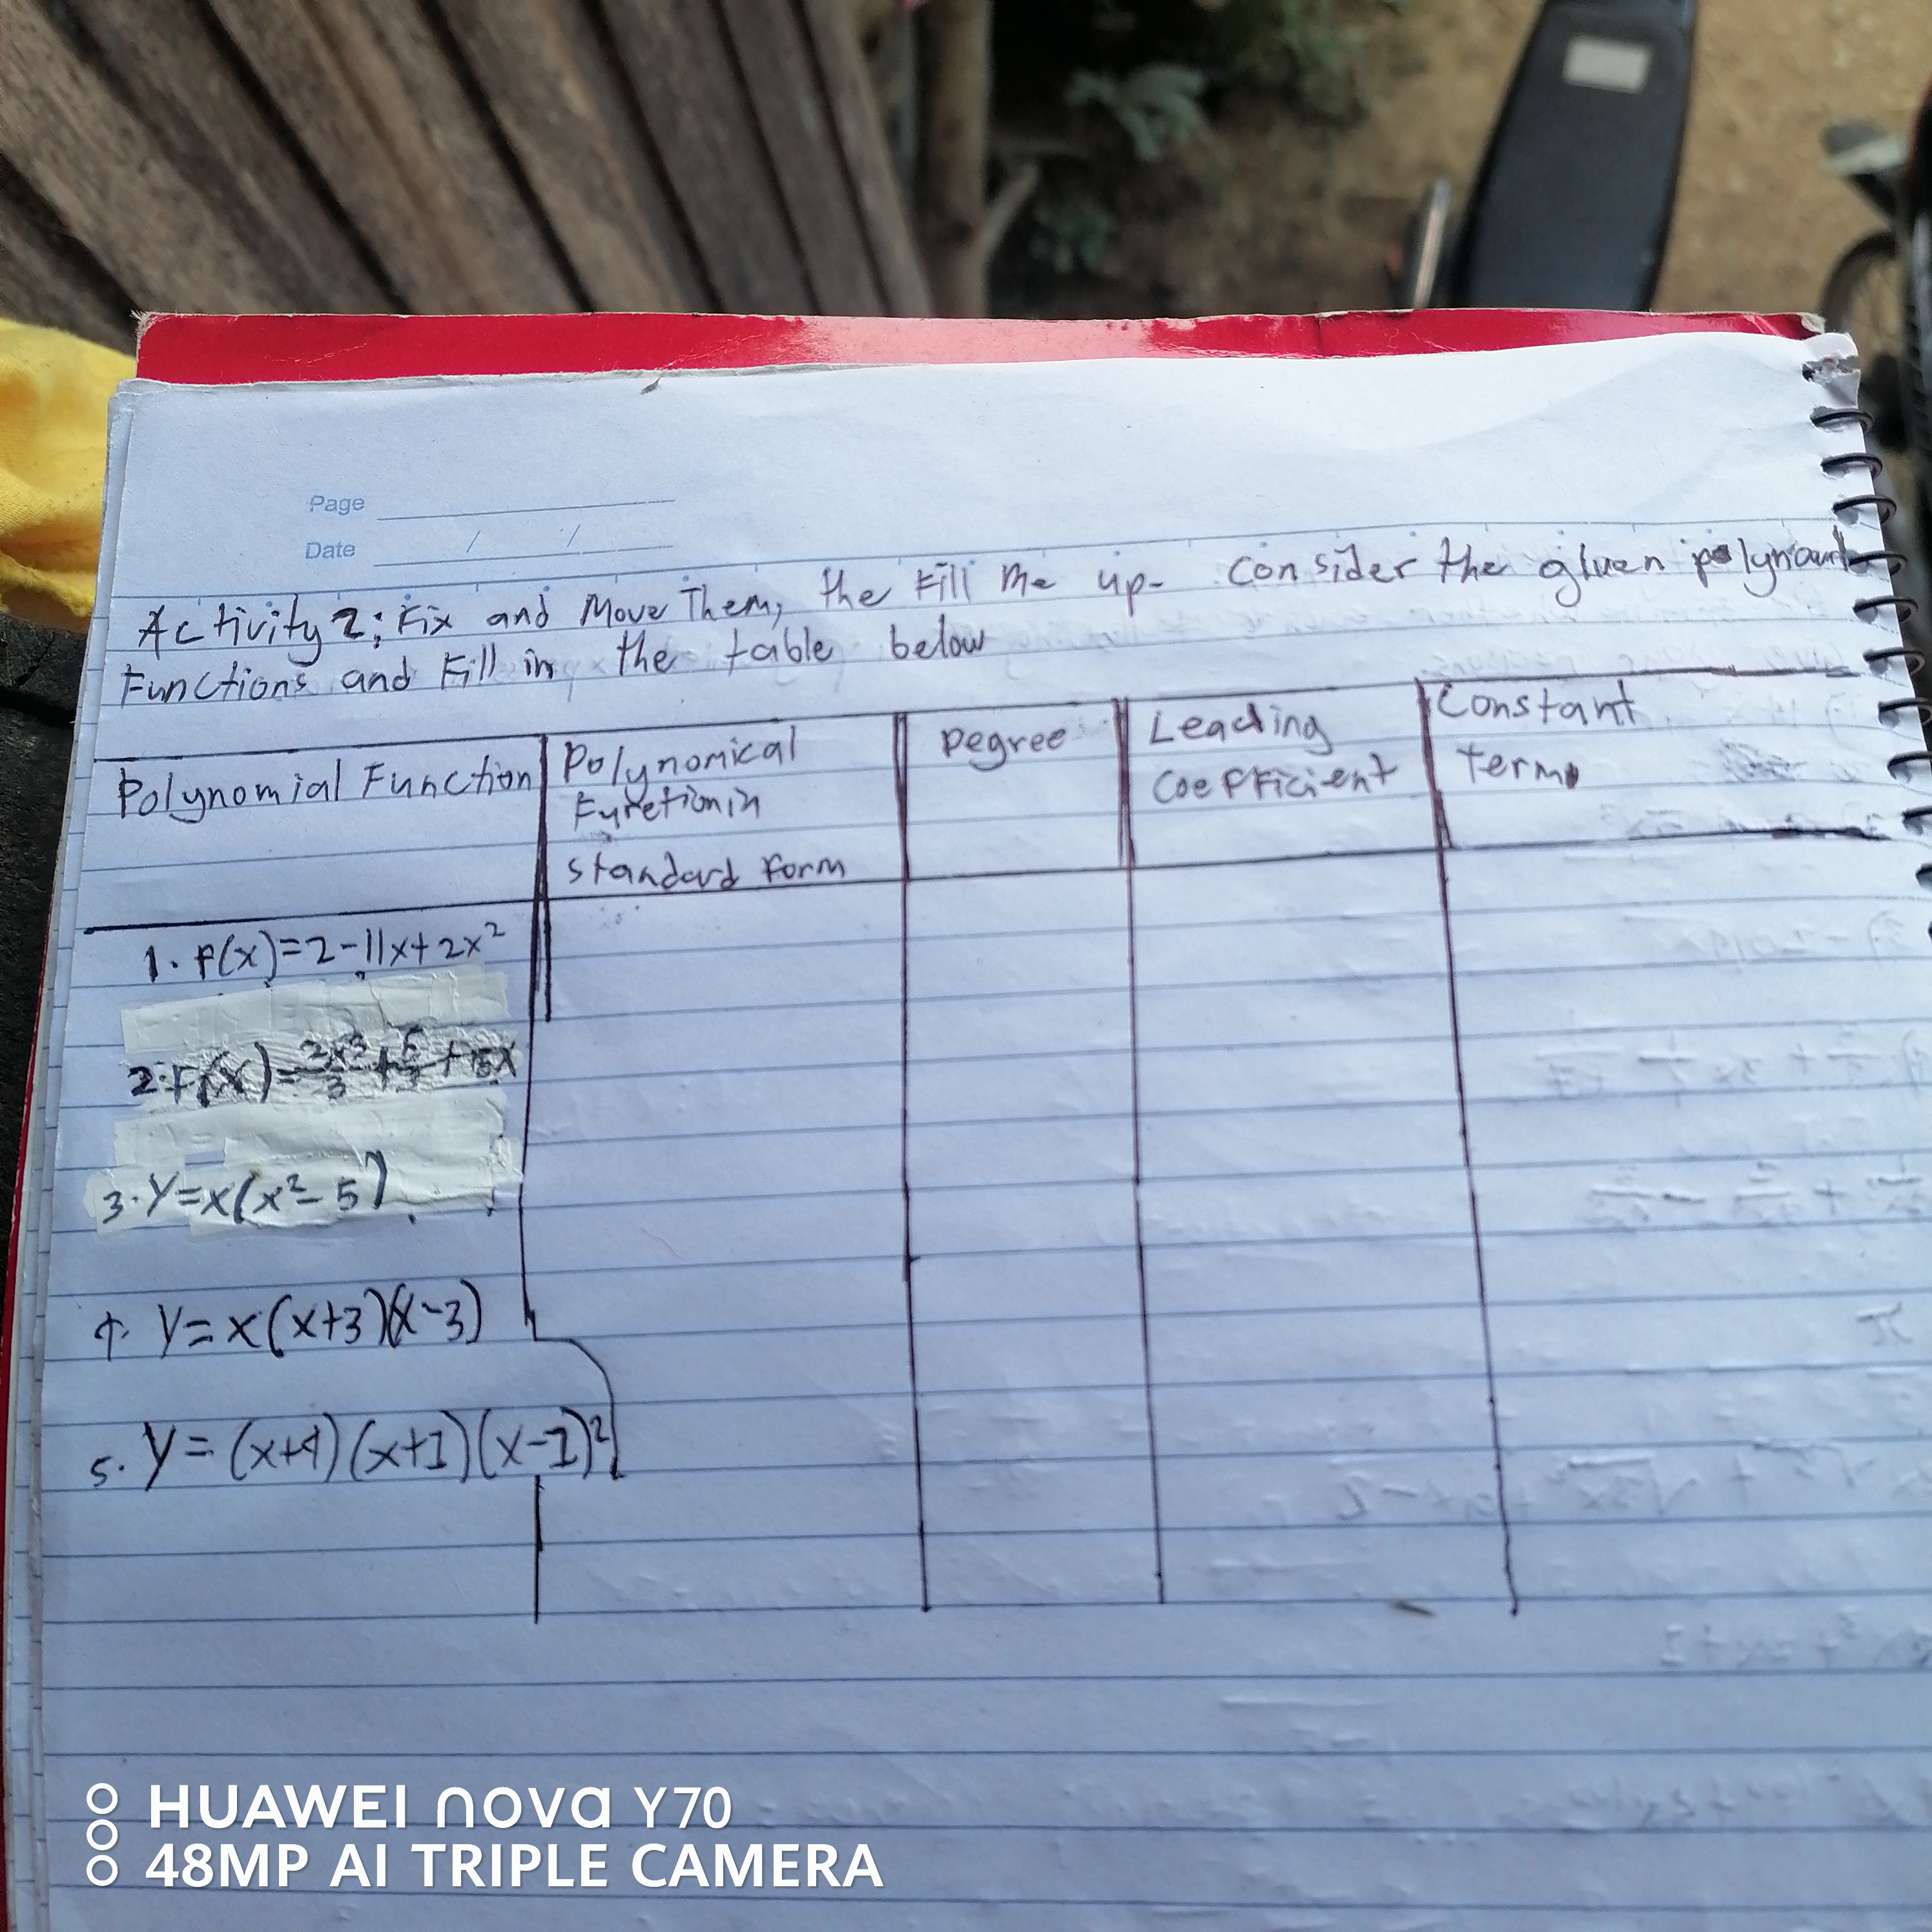 Page
Date / /
Activity 2: Fix and Move Them, the Fill Me up- Consider the given
Functions and Fill in the table below
Polynomial Function
Polynomical
in
standard Form
Degree
Leading
Coefficient
Constant
term
1. P(x)=2-11x+2x²
3. Y=x(x²-5)
4. Y=x(x+3)(x-3)
5. Y=(x+4)(x+1)(x-1)²
HUAWEI nova Y70
48MP AI TRIPLE CAMERA